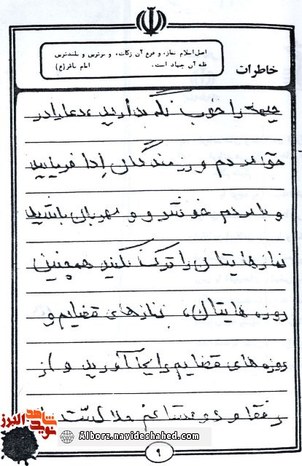 خاطرات
اصل اسلام نماز، و فرع آن زکات، و برترین و بلندترین
قله آن جهاد است. امام باقر(ع)
را خوب نگه بدارید، دعا را در
حق مردم و رزمندگان ادا فرمایید
و با مردم خوشرو و مهربان باشید
نمازهایتان را ترک نکنید همچنین
روزه هایتان، نمازهای قضایم و
روزه های قضایم را بجا آورید و از
رفقا و دوستانم
نوید شاهد البرز
Alborz.navideshahed.com
۹